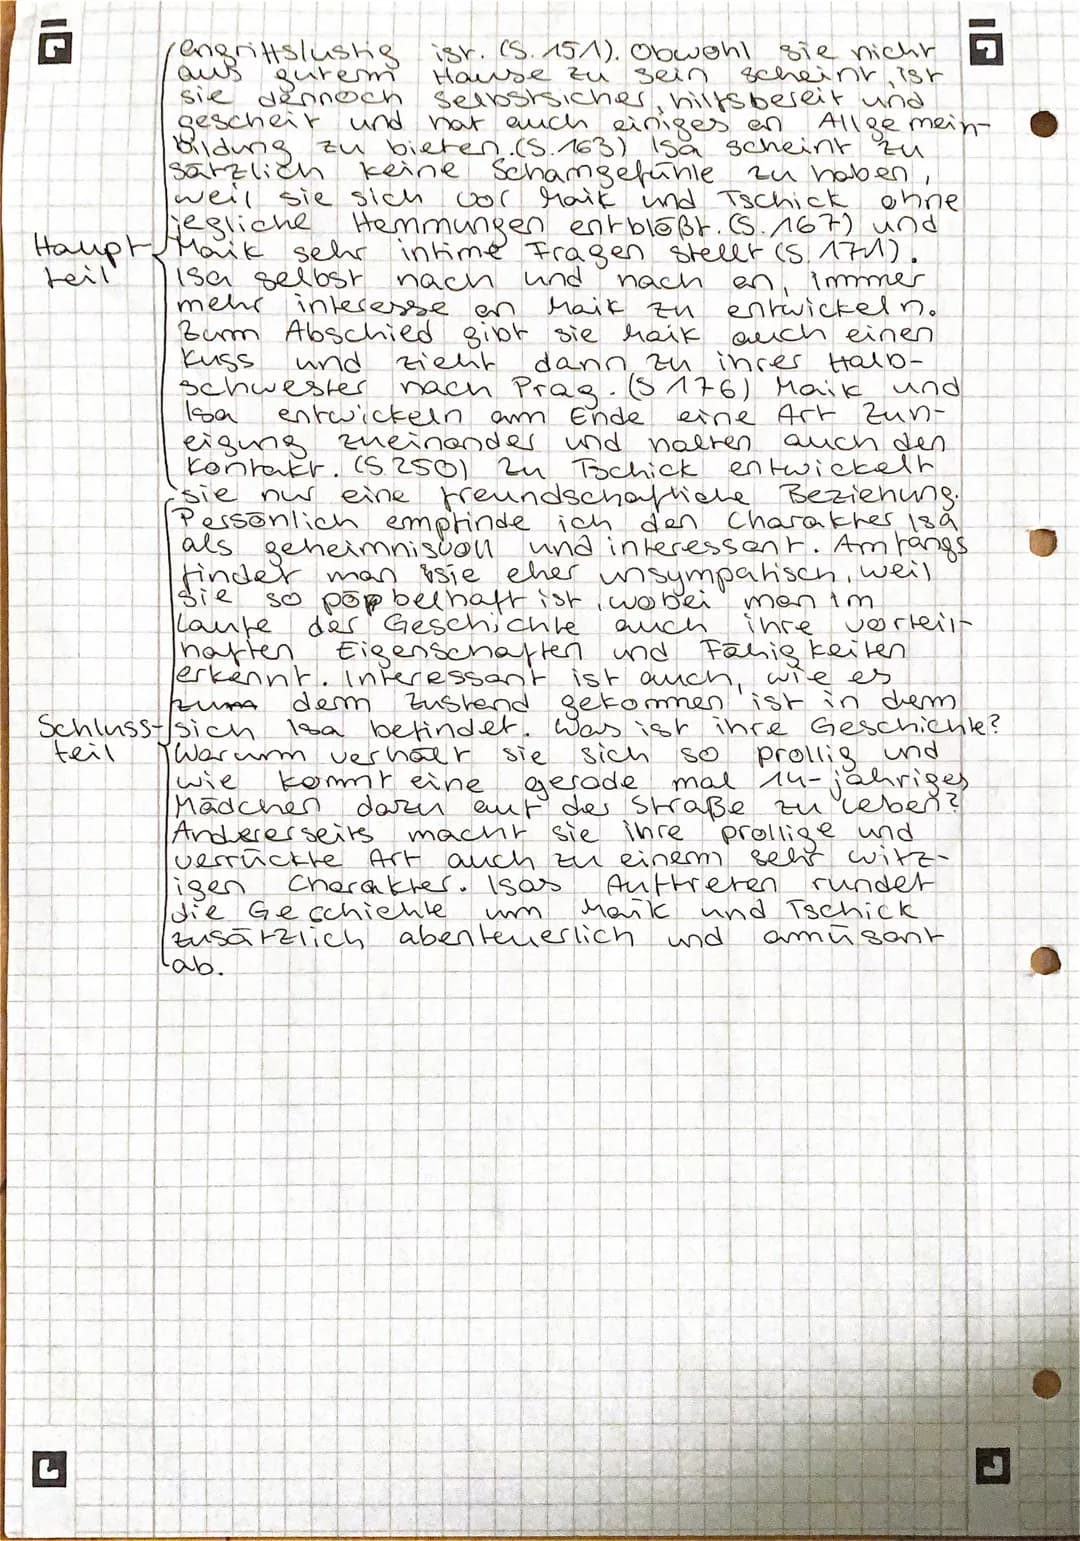 angriffslustig ist. (S. 151). Obwohl sie nicht
aus gutem Hause zu sein scheint, ist
sie dennoch selbstsicher, hilfsbereit und
gescheit und hat auch einiges an Allgemein-
bildung zu bieten. (S. 163) Isa scheint zu
sätzlich keine Schamgefühle zu haben,
weil sie sich vor Maik und Tschick ohne
jegliche Hemmungen entblößt. (S. 167) und
Haupt- Maik sehr intime Fragen stellt (S. 171).
teil Isa selbst nach und nach an, immer
mehr interesse an Maik zu entwickeln.
Zum Abschied gibt sie Maik auch einen
Kuss und zieht dann zu ihrer Halb-
schwester nach Prag. (S 176) Maik und
Isa entwickeln am Ende eine Art Zun-
eigung zueinander und halten auch den
Kontakt. (S. 250) Zu Tschick entwickelt
sie nur eine freundschaftliche Beziehung.
Persönlich empfinde ich den Charakter Isa
als geheimnisvoll und interessant. Anfangs
findet man sie eher unsympatisch, weil
sie so pöbelhaft ist, wobei man im
Laufe der Geschichte auch ihre vorteil-
haften Eigenschaften und Fähigkeiten
erkennt. Interessant ist auch, wie es
zum dem Zustand gekommen ist in dem
Schluss- sich Isa befindet. Was ist ihre Geschichte?
teil Warum verhält sie sich so prollig und
wie kommt eine gerade mal 14-jähriges
Mädchen dazu auf der Straße zu leben?
Andererseits macht sie ihre prollige und
verrückte Art auch zu einem sehr witz-
igen Charakter. Isas Auftreten rundet
die Geschichte um Maik und Tschick
zusätzlich abenteuerlich und amüsant
ab.